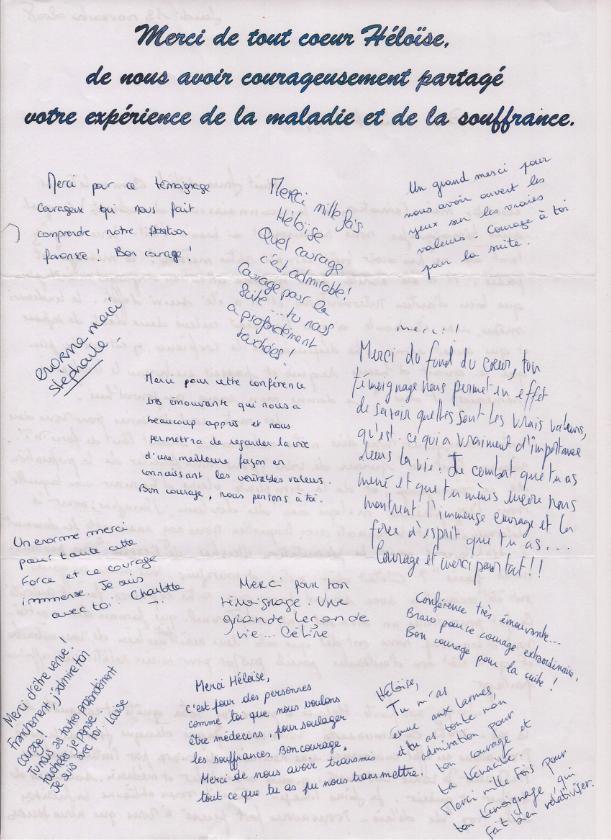 Merci de tout coeur Héloïse,
de nous avoir courageusement partagé
votre expérience de la maladie et de la souffrance.
Merci par ce témoignage
courageux qui nous fait
comprendre notre
! Bon courage !
Merci mille fois
Héloïse
Quel courage
c'est admirable !
Courage pour la
suite... tu nous
a profondément
touchées !
Un grand merci pour
nous avoir ouvert les
yeux sur les vraies
valeurs. Courage à toi
pour la suite.
enorme merci
Stéphanie
merci !
Merci du fond du coeur, ton
témoignage nous permet en effet
de savoir quelles sont les vrais valeurs,
qu'est-ce qui a vraiment d'importance
dans la vie. Le combat que tu as
mené et que tu mènes encore nous
montrent l'immense courage et la
force d'esprit que tu as...
Courage et merci pour tout !!
Merci pour cette conférence
très émouvante qui nous a
beaucoup appris et nous
permettra de regarder la vie
d'une meilleure façon en
connaissant les véritables valeurs.
Bon courage, nous pensons à toi.
Un enorme merci
pour toute cette
Force et ce courage
immense. Je suis
avec toi. Charlotte
Merci pour ton
témoignage. Une
grande leçon de
vie... Céline
Conférence très émouvante...
Bravo pour ce courage extraordinaire,
Bon courage pour la suite !
Merci d'être venue !
Franchement, j'admire ton
courage !
Tu nous as toutes profondément
touchées je pense.
Je suis avec toi. Laure
Merci Héloïse,
c'est pour des personnes
comme toi que nous voulons
être médecins, pour soulager
les souffrances. Bon courage.
Merci de nous avoir transmis
tout ce que tu as pu nous transmettre.
Héloïse,
Tu m'as
émue aux larmes,
et tu as toute mon
admiration pour
ton courage et
ta tenacité.
Merci mille fois pour
ton témoignage qui
fait bien relativiser.